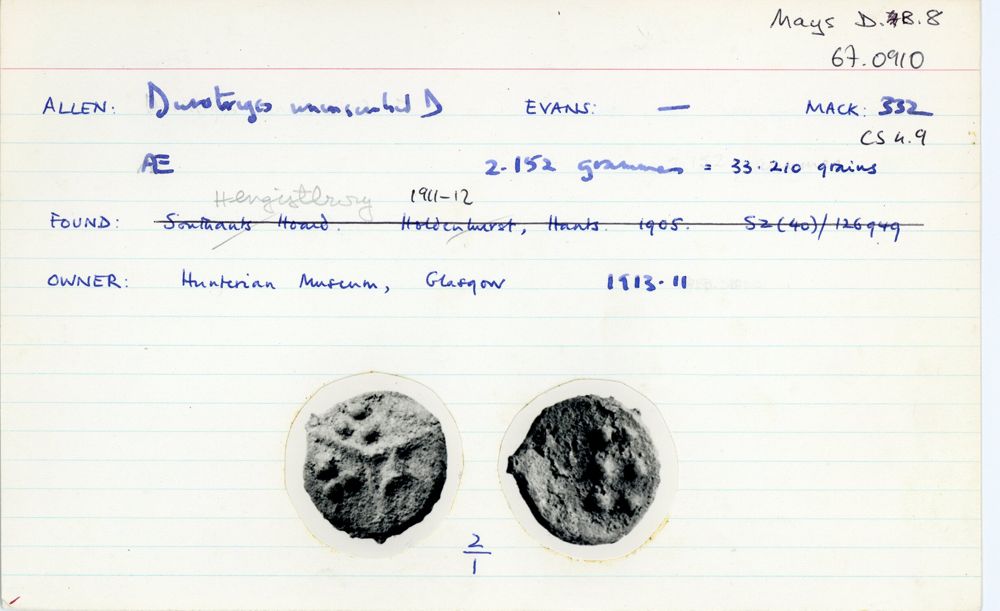 Mays D.B.8
67.0910
ALLEN: Durotriges uninscribed D EVANS: — MACK: 332
CS 4.9
Æ 2.152 grammes = 33.210 grains
Hengistbury 1911-12
FOUND: Southants Hoard. Holdenhurst, Hants. 1905. SZ (40)/126949
OWNER: Hunterian Museum, Glasgow 1913.11
2
1